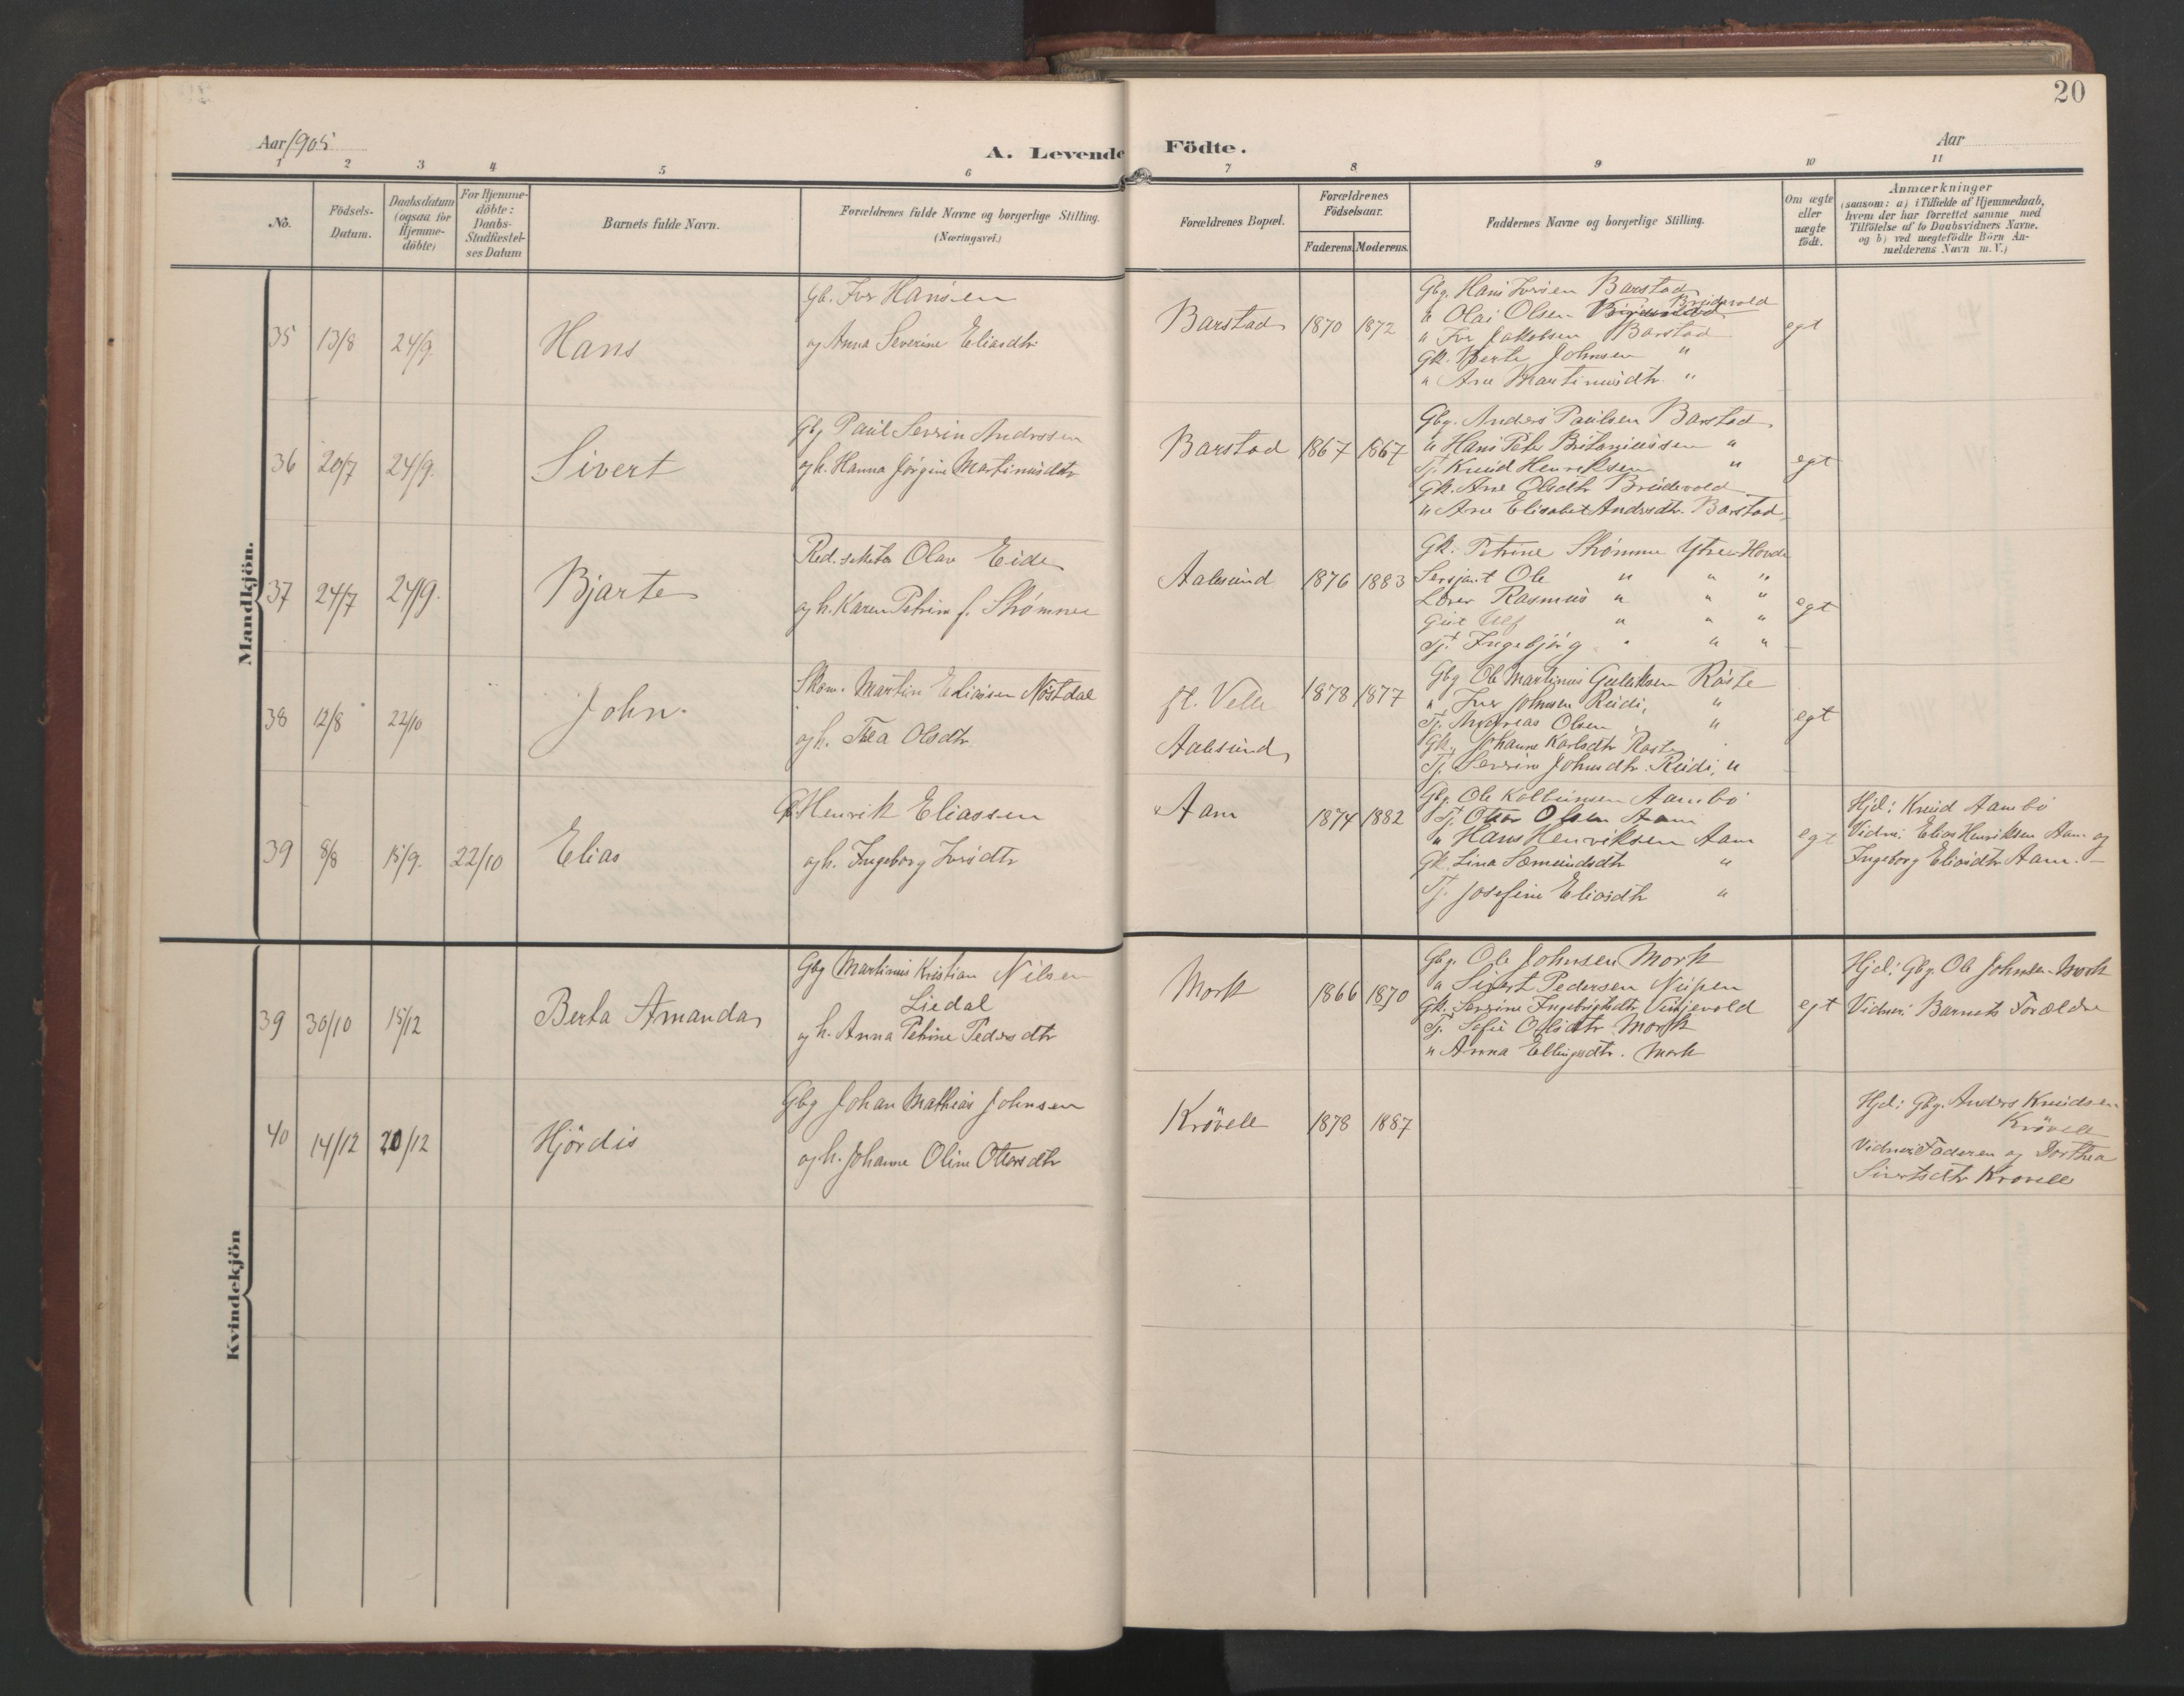 20
Aar 1905
A. Levende Födte.
Aar
1 2 3 4 5 6 7 8 9 10 11
No.
Födsels-
Datum.
Daabsdatum
(ogsaa for
Hjemme-
döbte)
For Hjemme-
döbte:
Daabs-
Stadfæstel-
ses Datum
Barnets fulde Navn.
Forældrenes fulde Navne og borgerlige Stilling.
(Næringsvei.)
Forældrenes Bopæl.
Forældrenes
Födselsaar.
Faderens. Moderens.
Faddernes Navne og borgerlige Stilling.
Om ægte
eller
uægte
födt.
Anmærkninger
(saasom: a) i Tilfælde af Hjemmedaab,
hvem der har forrettet samme med
Tilföielse af to Daabsvidners Navne,
og b) ved uægtefödte Börn An-
melderens Navn m. V.)
Mandkjön.
35 13/8 24/9. Hans
Gb. Ivr Hansen
og Anna Severine Eliasdtr
Barstad 1870 1872
Gbg. Hans Iversen Barstad
" Olai Olsen Breidevold
" Ivr Jakobsen Barstad
Gk. Berte Johnsen "
" Ane Martinusdtr. "
egt
36 20/7 24/9. Sivert
Gbg Paul Sevrin Andressen
og h. Hanna Jørgine Martinusdtr
Barstad 1867 1867
Gbg. Anders Paulsen Barstad
" Hans Peter Britanisen "
Tj. Knud Henriksen "
Gk. Ane Olsdtr Breidevold
" Ane Elisabet Andersdtr. Barstad
egt
37 24/7 24/9. Bjarte
Red. sekretær Olav Eide
og h. Karen Petrine f. Strømme
Aalesund 1876 1883
Gk. Petrine Strømme Ytre-Hovde
Sersjant Ole " " "
Lærer Rasmus " " "
Gut Ulf " " "
Tj. Ingebjörg " " "
egt
38 12/8 22/10 John
Skom. Martin Eliassen Nöstdal
og h. Thea Olsdtr
pt. Velle
Aalesund
1878 1877
Gbg Ole Martinus Gulaksen Raaste
" Iver Johnsen Reidi, "
Tj. Andreas Olsen "
Gk. Johanne Karlsdtr Raaste
Tj. Sevrine Johnsdtr. Reidi, "
egt
39 8/8 15/9. 22/10 Elias
Gb Henrik Eliassen
og h. Ingeborg Iversdtr
Aam 1874 1882
Gbg. Ole Kolbeinsen Aambö
Tj. Ottar Olsen Aam
" Hans Henriksen Aam
Gk. Lina Sæmundsdtr "
Tj. Josefine Eliasdtr "
egt
Hjd: Knud Aambö
Vidner: Elias Henriksen Aam og
Ingeborg Eliasdtr Aam.
Kvindekjön
39 30/10 15/12 Berta Amanda
Gbg Martinus Kristian Nilsen
Liedal
og h. Anna Petrine Pedersdtr
Mork 1866 1870
Gbg. Ole Johnsen Mork
" Sivert Pedersen Nupen
Gk. Sevrine Ingebrigtsdtr
Tj. Sofie Olsdtr Mork
" Anna Ellingsdtr. Mork
egt
Hjd: Gbg. Ole Johnsen Mork
Vidner: Barnets Forældre
40 14/12 20/12 Hjördis
Gbg Johan Mathias Johnsen
og h. Johanne Oline Ottarsdtr
Krövell 1878 1887
Hjd: Gbg. Anders Knudsen
Krövell
Vidner: Faderen og Dorthea
Sivertsdtr Krövell